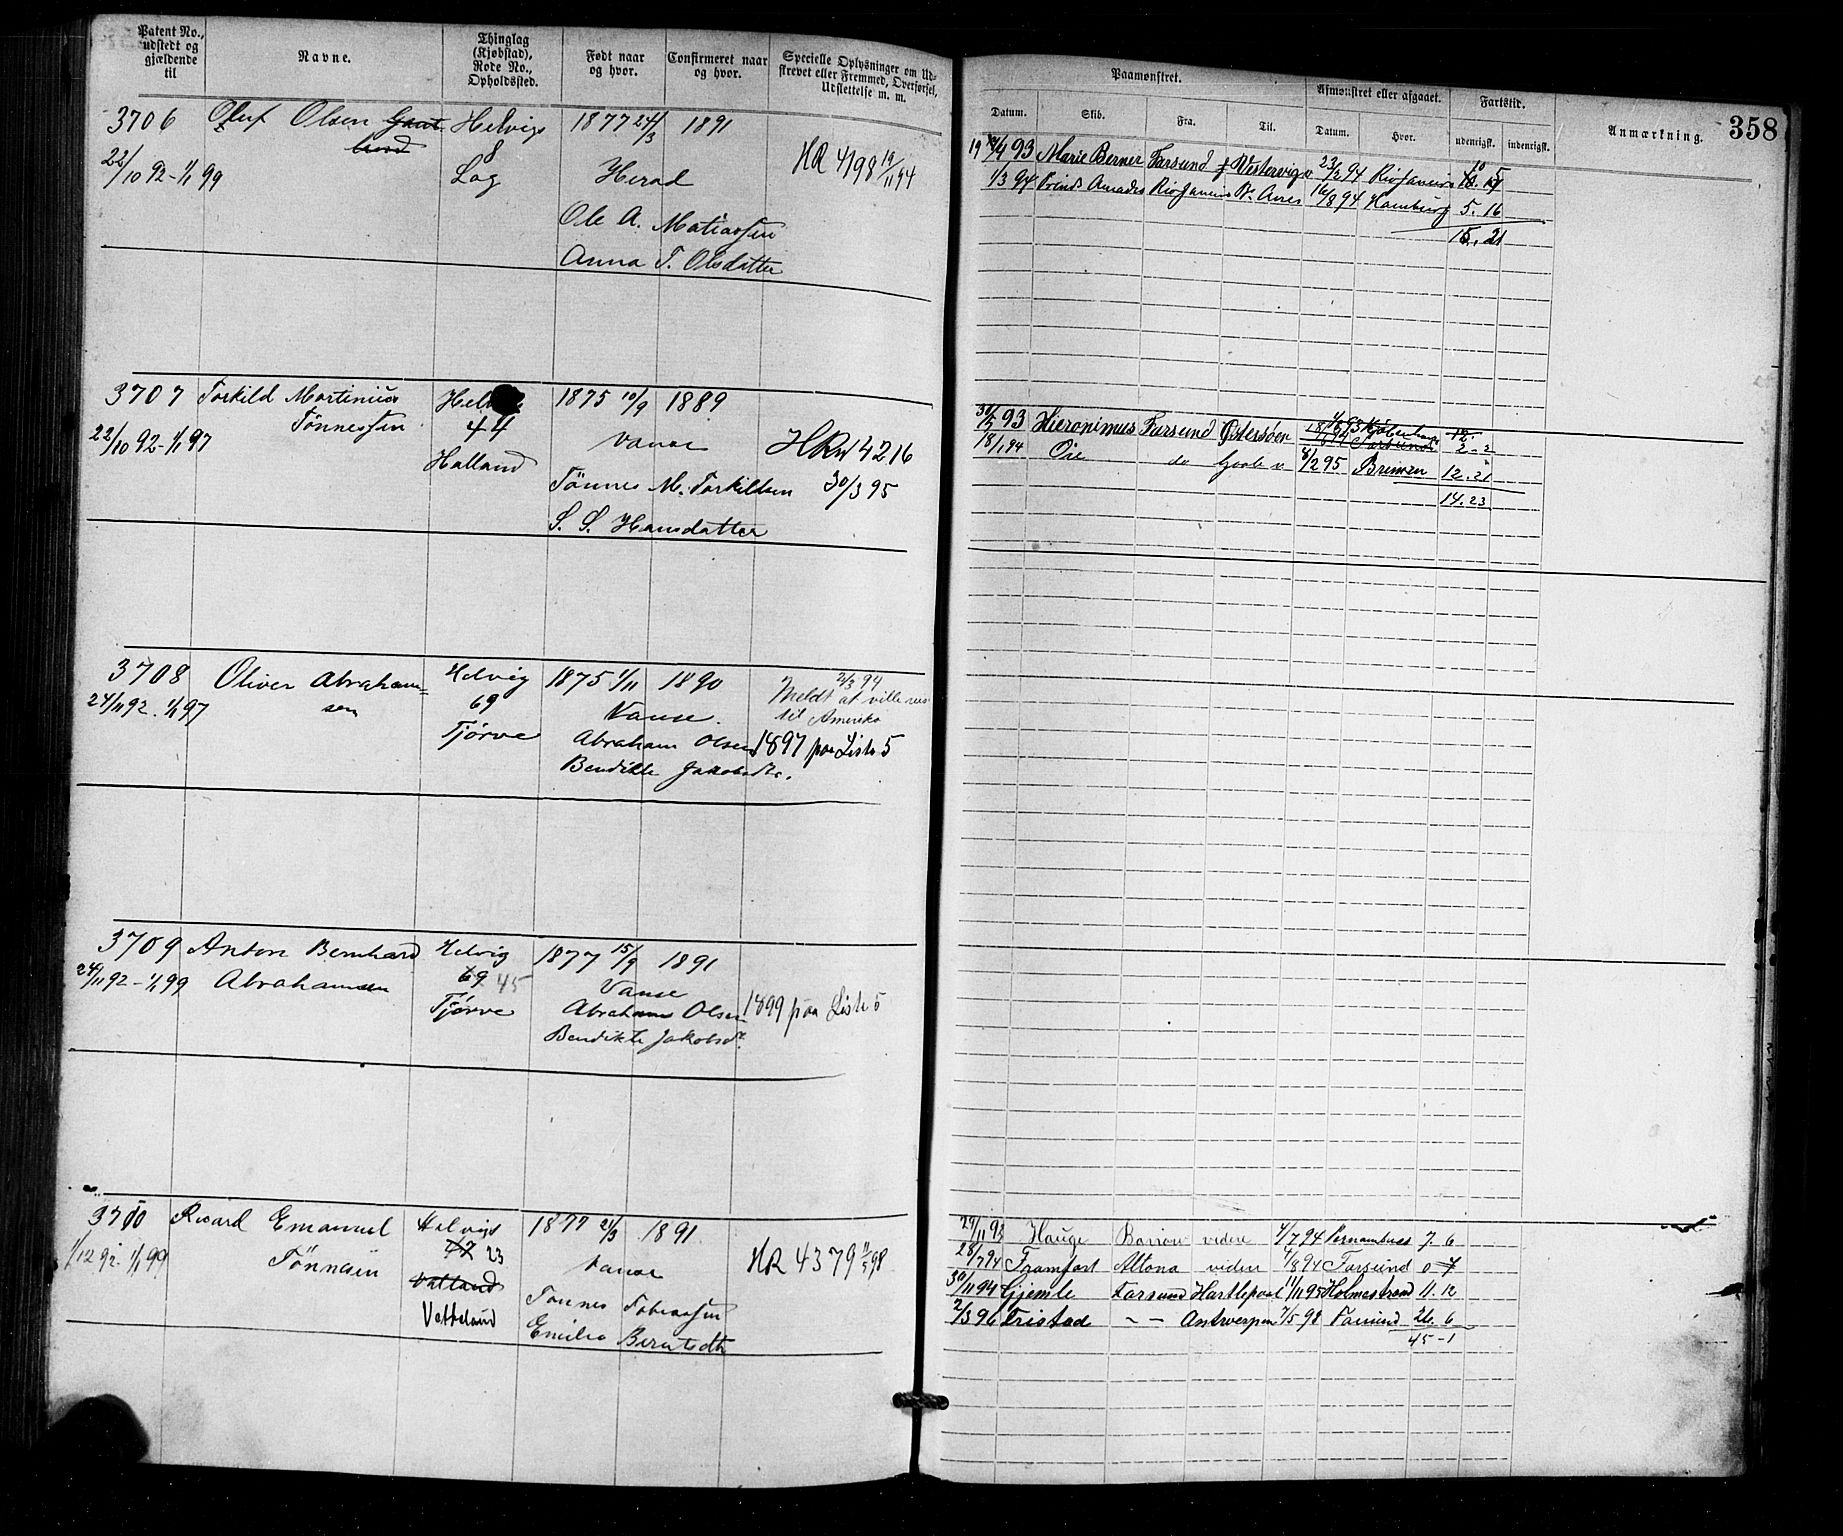 Patent No., udstedt og gjældende til
Navne.
Thinglag (Kjøbstad), Rode No., Opholdssted.
Født naar og hvor.
Confirmeret naar og hvor.
Specielle Oplysninger om Udskrevet eller Fremmed, Overførsel, Udslettelse m. m.
3706 Oluf Olsen Helvigs 1877 24/3 1891
8
22/10 92-1/1 99 Log Herad HR 4198 19/11 94
Ole A. Matiassen
Anna T. Olsdatter
3707 Torkild Martinius 1875 10/9 1889
Tønnessen 44
22/10 92-1/1 97 Vanse HR 4216
Halland
Tönnes M. Torkildsen 30/3 95
S. S. Hansdatter
3708 Oliver Abraham= Helvig 1875 1/11 1890 2/3 94
sen 69 Meldt at ville reis
24/11 92. 1/1 97 Vanse. til Amerika
Tjørve Abraham Olsen 1897 paa Liste 5
Bendikte Jakobsdtr.
3709 Anton Bernhard Helvig 1877 15/9 1891
24/11 92-1/1 99 Abrahamsen 69 45 Vanse
Tjørve Abraham Olsen 1899 paa Liste 5
Bendikte Jakobsdr
3710 Ricard Emanuel Helvigs 1877 21/3 1891
1/12 92. 1/1 99 Tönnesen 47 23 Vanse HR 4379 11/5 98
Vatland
Vatteland Tønnes Tobiassen
Emilie Berntsdtr
Paamønstret.
Afmønstret eller afgaaet.
Fartstid.
Anmærkning.
358
Datum. Skib. Fra. Til. Datum. Hvor. udenrigsk. indenrigsk.
19/4 93 Marie Berner Farsund f Westervig o 23/2 94 Rio Janeiro 10
1/3 94 Prinds Amadeo Rio Janeiro Bs Aires 16/8 94 Hamburg 5. 16
15. 21
30/5 93 Hieronimus Farsund Østersøen
18/1 94 Öie do 8/2 95 Bremen 12. 21
14. 23
29/11 92 Hauge Barrow videre 4/7 94 Pernambuco 7. 6
28/7 94 Framfart Altona videre 4/8 94 Farsund 0 7
30/11 94 Gjemle Farsund Hartlepool 11/11 95 Holmestrand 11. 12
2/3 96 Tristad - - Antwerpen 7/5 98 Farsund 26. 6
45-1